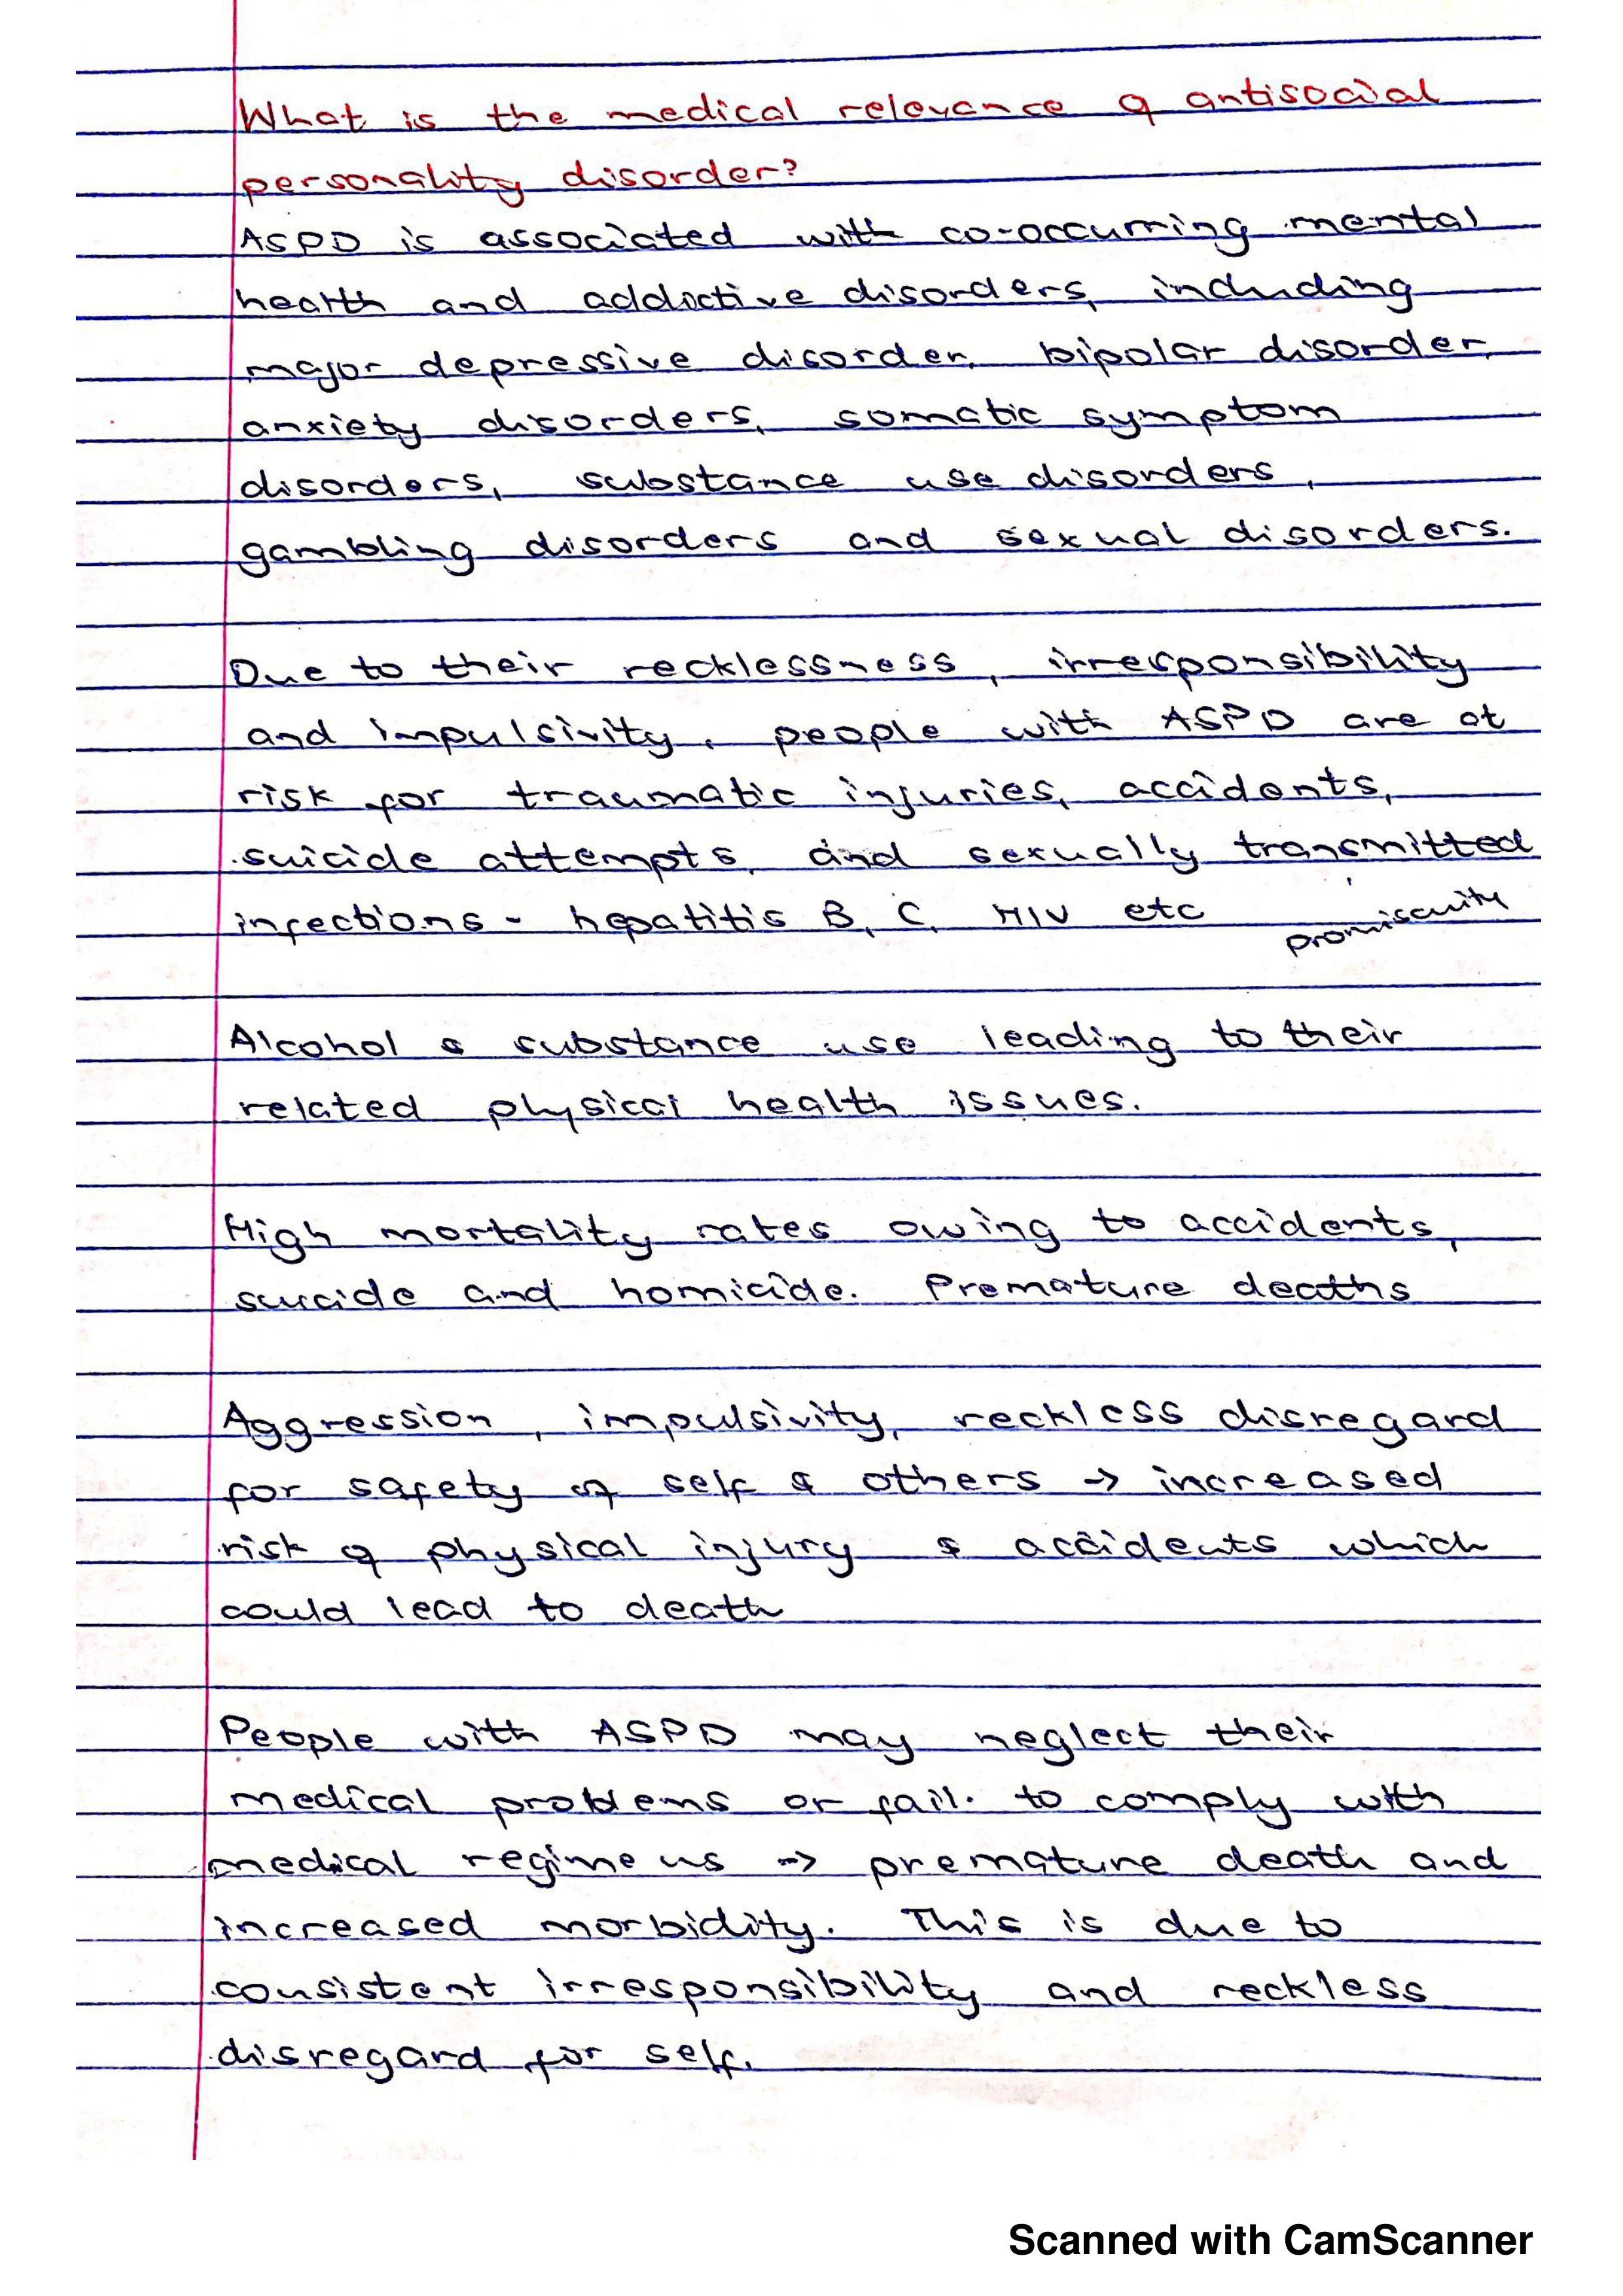 What is the medical relevance of antisocial
personality disorder?
ASPD is associated with co-occurring mental
health and addictive disorders, including
major depressive disorder, bipolar disorder,
anxiety disorders, somatic symptom
disorders, substance use disorders,
gambling disorders and sexual disorders.
Due to their recklessness, irresponsibility
and impulsivity, people with ASPD are at
risk for traumatic injuries, accidents,
suicide attempts, and sexually transmitted
infections - hepatitis B, C, HIV etc promiscuity
Alcohol & substance use leading to their
related physical health issues.
High mortality rates owing to accidents,
suicide and homicide. Premature deaths
Aggression, impulsivity, reckless disregard
for safety of self & others → increased
risk of physical injury & accidents which
could lead to death
People with ASPD may neglect their
medical problems or fail to comply with
medical regimens → premature death and
increased morbidity. This is due to
consistent irresponsibility and reckless
disregard for self.
Scanned with CamScanner